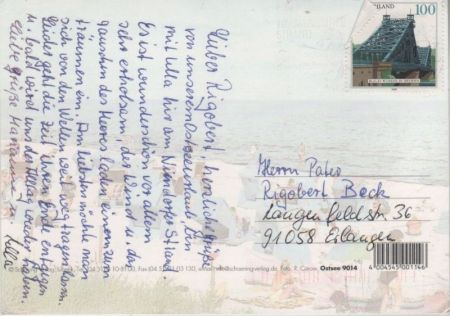 Lieber Rigobert, herzliche Grüße
von unserem Ostseeurlaub. Bin
mit Ulla hier am Niendorfer Strand.
Es ist wunderschön vor allem
sehr erholsam, der Wind u. das
Rauschen des Meeres laden ein zum
träumen ein. Am liebsten möchte man
sich von den Wellen weit weg tragen lassen.
Leider geht die Zeit ihrem Ende entgegen
u. bald wird uns der Alltag wieder haben.
Liebe Grüße Marianne u.
Ulla
LAND
100
Herrn Pater
Rigobert Beck
Langenfeldstr. 36
91058 Erlangen
Ostsee 9014
4 004545 001146